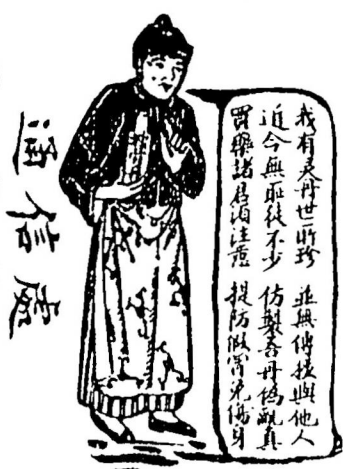 我有灵丹世所珍 並無傳授與他人
近今無耻徒不少 仿製吾丹偽亂真
買藥諸君須注意 提防假冒免傷身
通信處